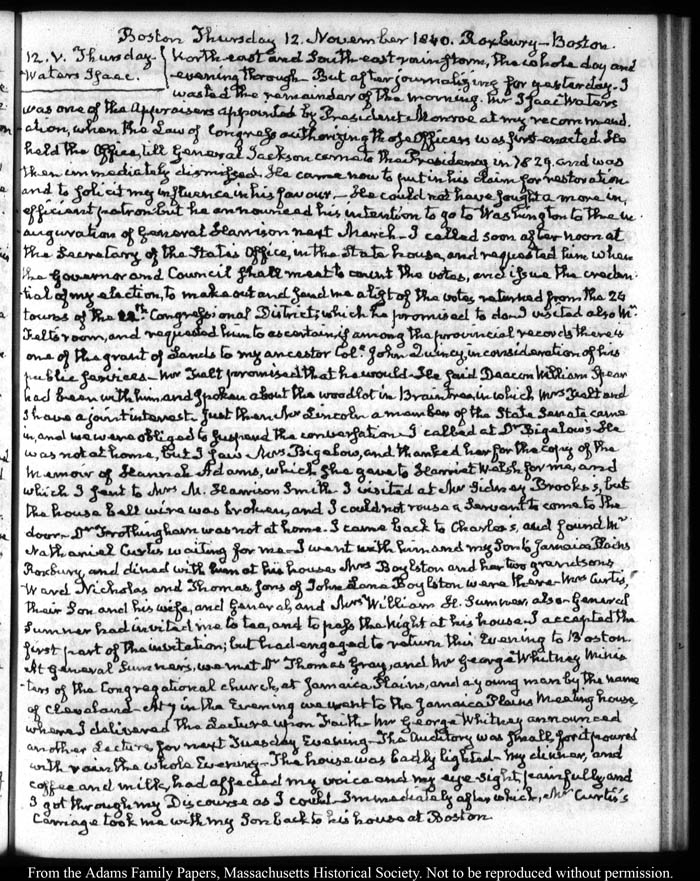 Boston Thursday 12. November 1840. Roxbury–Boston.
12. V. Thursday
Waters Isaac.
North-east and South-east rain storm, the whole day and
evening through – But after journalizing for yesterday. I
wasted the remainder of the morning. Mr Isaac Waters
was one of the Appraisers appointed by President Monroe at my recommend-
ation, when the Law of Congress authorizing those Officers was first enacted. He
held the Office, till General Jackson came to the Presidency in 1829. and was
then immediately dismissed. He came now to put in his claim for restoration
and to solicit my influence in his favour. – He could not have sought a more in-
efficient patron but he announced his intention to go to Washington to the in-
auguration of General Harrison next March – I called soon after noon at
the Secretary of the State's Office, in the State house, and requested him when
the Governor and Council shall meet to count the votes, and issue the creden-
tial of my election, to make out and send me a list of the votes returned from the 24
towns of the 12th Congressional District; which he promised to do. I visited also Mr
Felt's room, and requested him to ascertain if among the provincial records there is
one of the grant of Lands to my ancestor Coll. John Quincy, in consideration of his
public services – Mr Felt promised that he would. He said Deacon William Spear
had been with him and spoken about the woodlot in Braintree, in which Mrs Felt and
I have a joint interest. Just then Mr Lincoln a member of the State Senate came
in, and we were obliged to suspend the conversation. I called at Dr Bigelow's – He
was not at home, but I saw Mrs Bigelow, and thanked her for the copy of the
Memoir of Hannah Adams, which she gave to Harriet Welsh for me, and
which I sent to Mrs M. Harrison Smith. I visited at Mr Sidney Brooks's, but
the house bell wire was broken, and I could not rouse a servant to come to the
door – Dr Frothingham was not at home. I came back to Charles's, and found Mr
Nathaniel Curtis waiting for me – I went with him and my Son to Jamaica Plains
Roxbury, and dined with him at his house. Mrs Boylston and her two grandsons
Ward Nicholas and Thomas sons of John Lane Boylston were there – Mrs Curtis,
their Son and his wife, and General, and Mrs William H. Sumner, also – General
Sumner had invited me to tea, and to pass the Night at his house. I accepted the
first part of the invitation; but had engaged to return this Evening to Boston.
At General Sumner's, we met Dr Thomas Gray, and Mr George Whitney Minis-
ters of the Congregational church, at Jamaica Plains, and a young man by the name
of Cleaveland – At 7 in the Evening we went to the Jamaica Plains Meeting house
where I delivered the Lecture upon Faith – Mr George Whitney announced
another Lecture for next Tuesday Evening – The Auditory was small, for it poured
with rain the whole Evening – The house was badly lighted – my dinner, and
coffee and milk, had affected my voice and my eye-sight, painfully, and
I got through my Discourse as I could – Immediately after which, Mr Curtis's
Carriage took me with my Son back to his house at Boston.
From the Adams Family Papers, Massachusetts Historical Society. Not to be reproduced without permission.